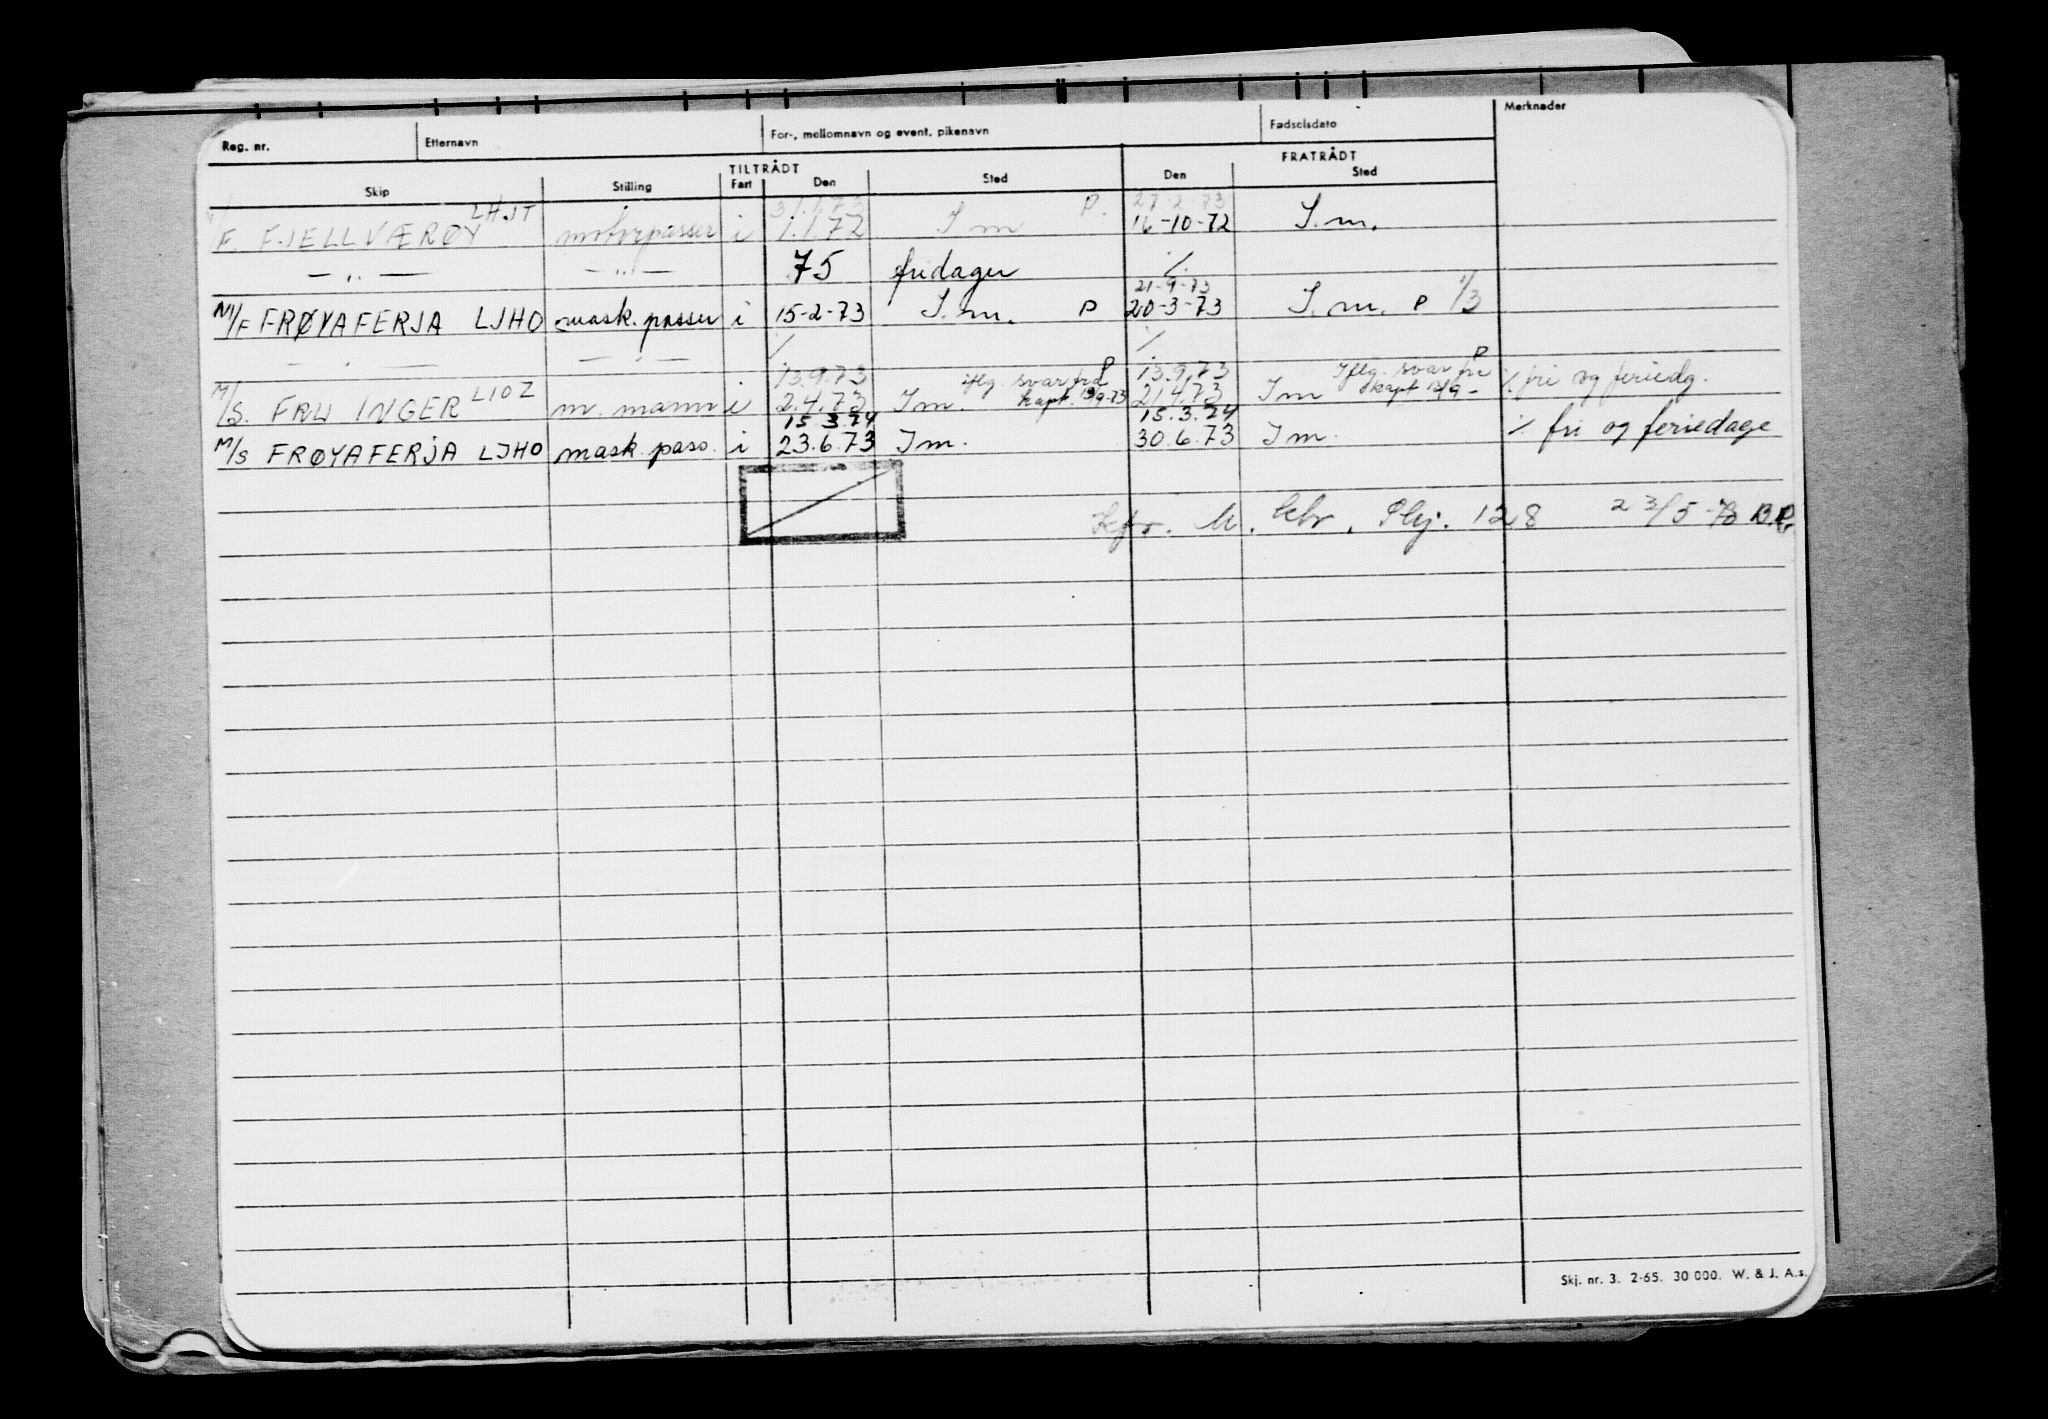 Reg. nr. Etternavn For-, mellomnavn og event. pikenavn Fødselsdato Merknader
TILTRÅDT FRATRÅDT
Skip Stilling Fart Den Sted Den Sted
LHJT 31.1.73 P. 27-2-73
M/F. FJELLVÆRØY motorpasser i 1.1.72 I m 16-10-72 I. m.
— " — — " — 75 fridager ./.
21-9-73
M/F FRØYAFERJA LJHO mask. passer i 15-2-73 I. m. P 20-3-73 I. m. P 1/3
— " — — " — ./. ./.
13.9.73 iflg. svar fra P 13.9.73 Iflg. svar fra P
M/S. FRU INGER LIOZ m. mann i 2.4.73 I m. kapt. 13/9-73 21.4.73 I m kapt 13/9- ./. fri og feriedg.
15.3.74 15.3.74
M/S FRØYAFERJA LJHO mask. pass. i 23.6.73 I m. 30.6.73 I m. ./. fri og feriedage
M. 128 23/5-73
Skj. nr. 3. 2-65. 30 000. W. & J. A.s.